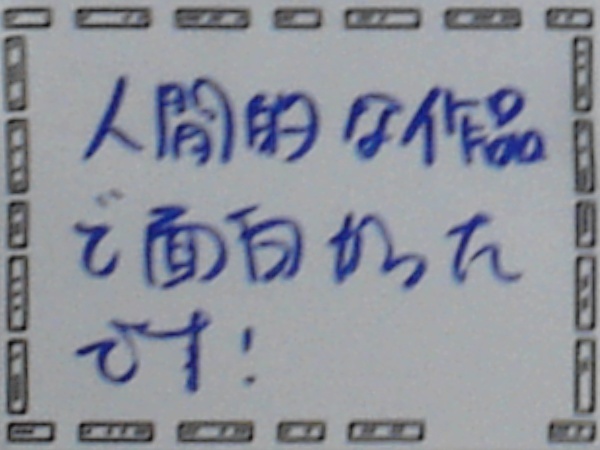 人間的な作品
で面白かった
です!